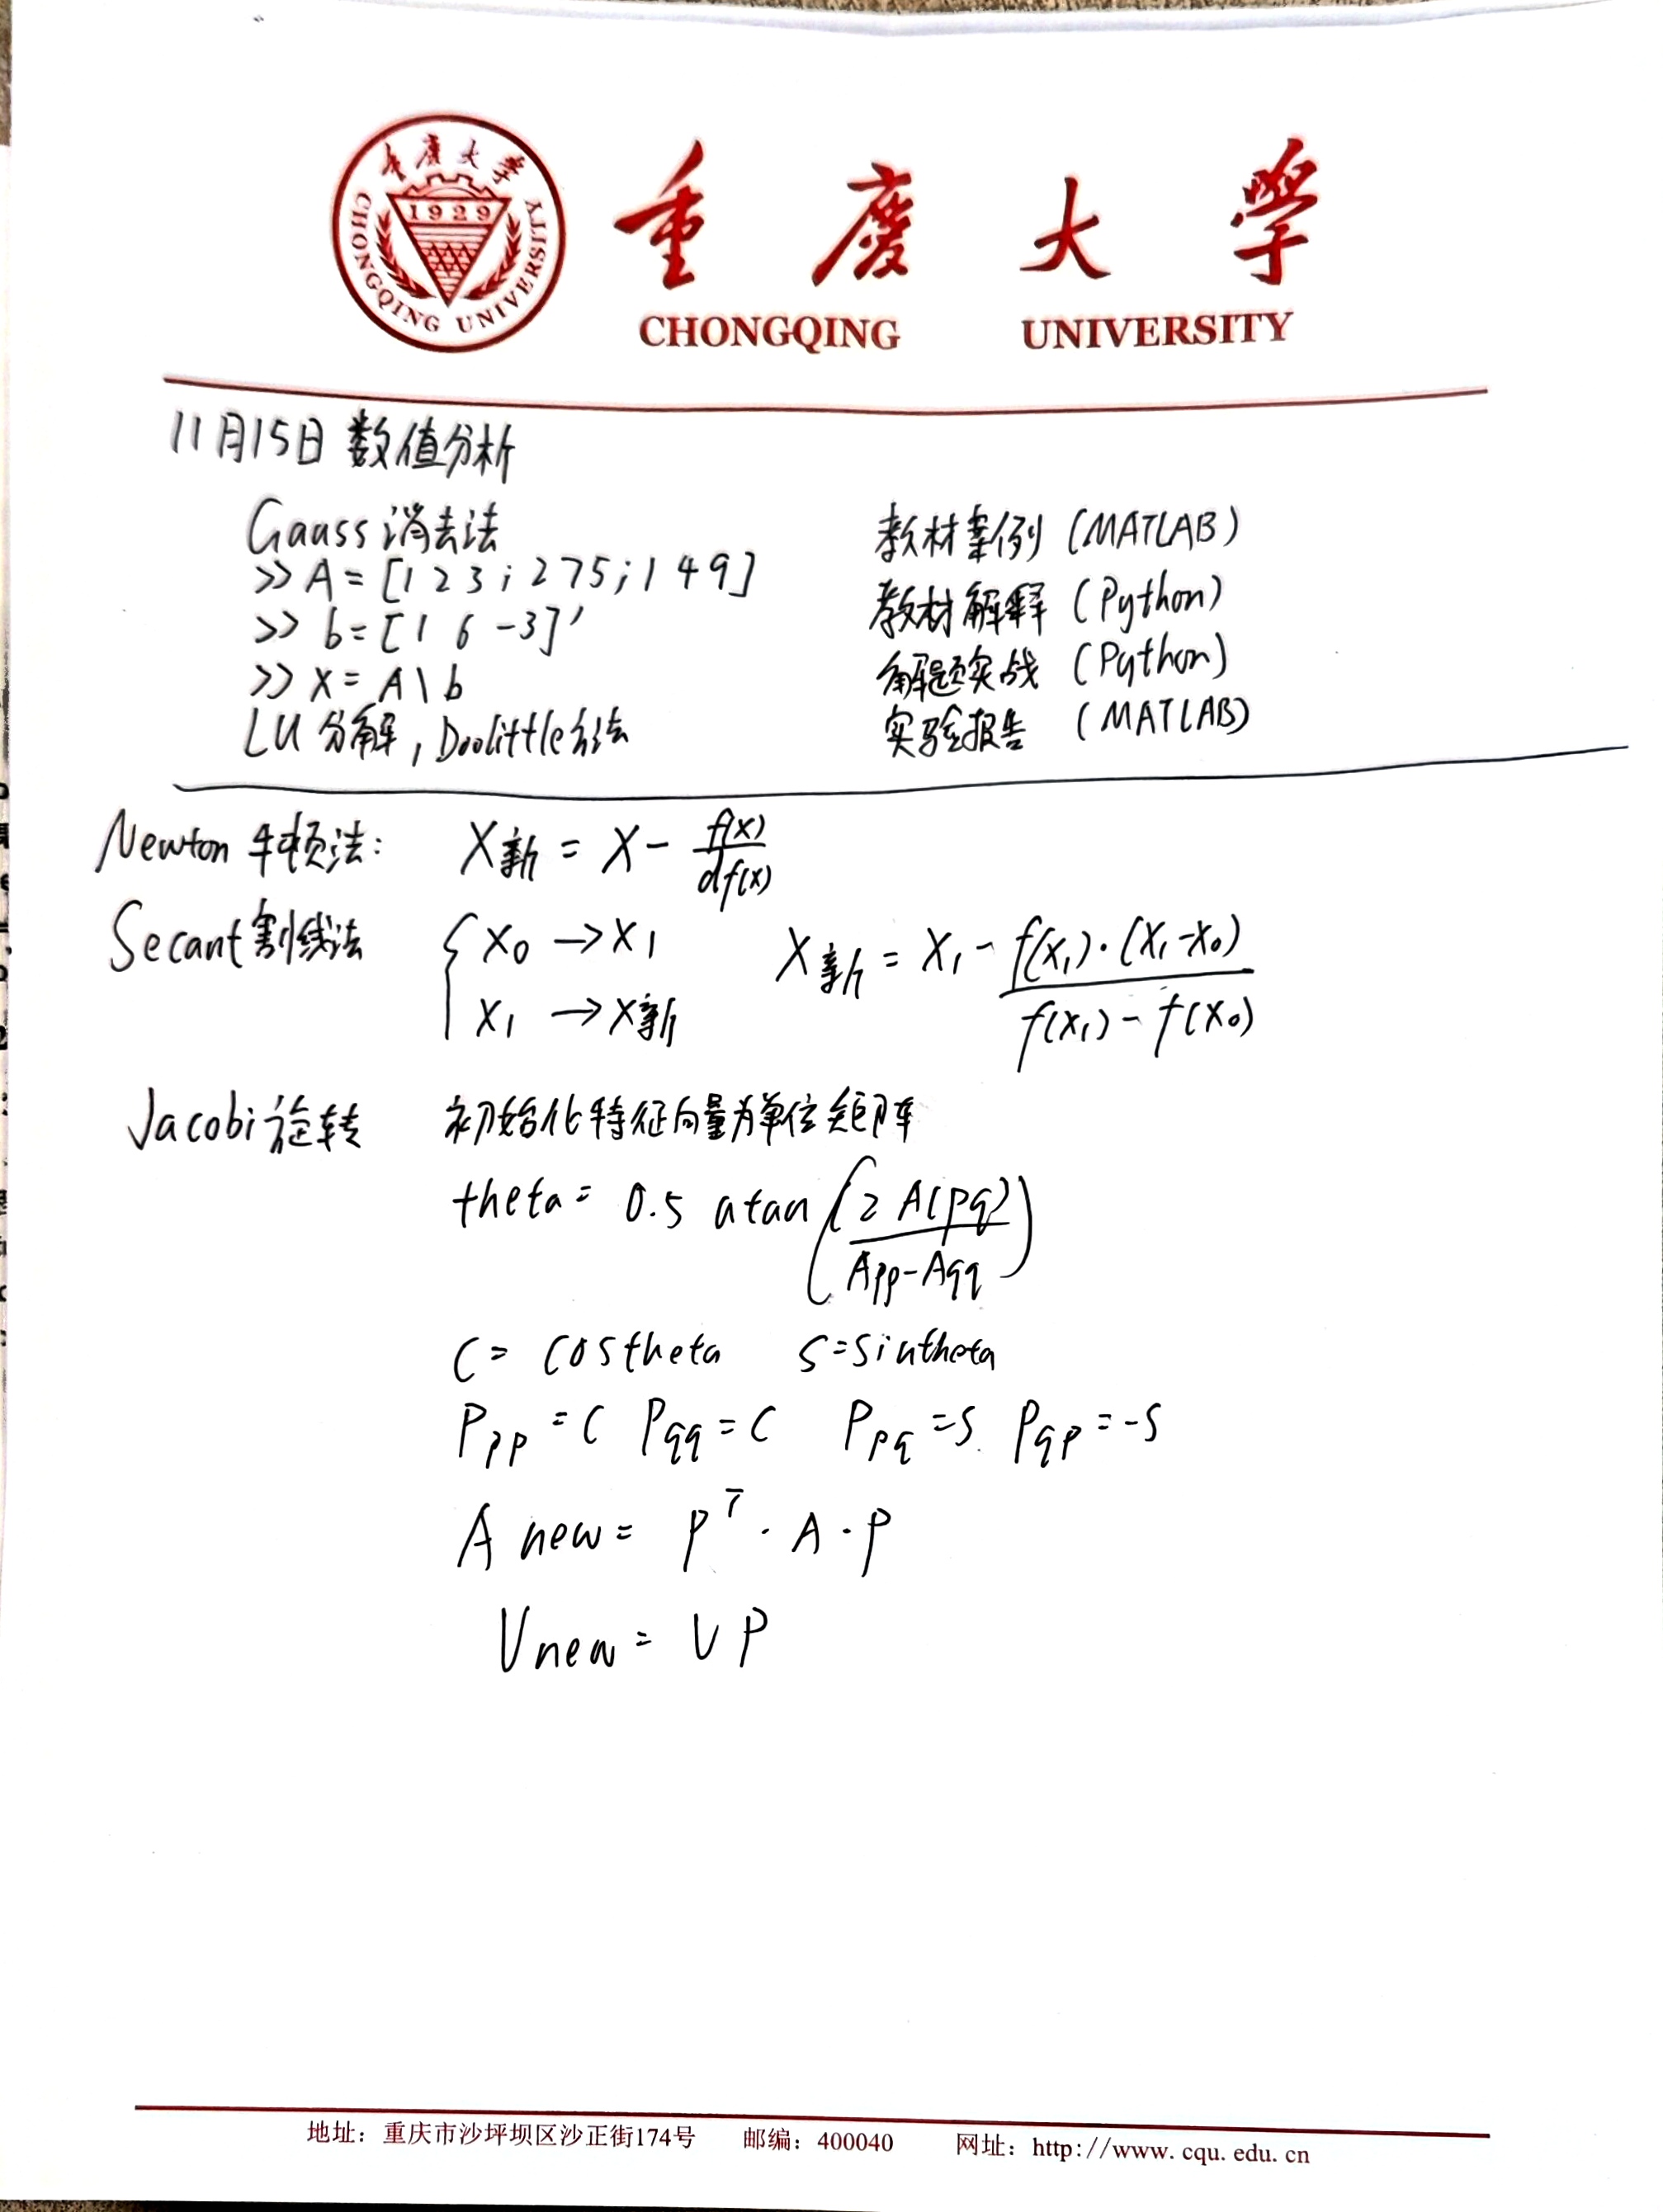 重庆大学
1929
CHONGQING UNIVERSITY
重庆大学
CHONGQING UNIVERSITY
11月15日 数值分析
Gauss消去法
>> A = [1 2 3 ; 2 7 5 ; 1 4 9]
>> b = [1 6 -3]'
>> x = A \ b
LU分解, Doolittle方法
教材案例 (MATLAB)
教材解释 (Python)
解题实战 (Python)
实验报告 (MATLAB)
Newton 牛顿法: X新 = X - f(x)/df(x)
Secant割线法 { x0 → x1
x1 → x新
X新 = X1 - f(x1)·(x1-x0) / f(x1) - f(x0)
Jacobi旋转 初始化特征向量为单位矩阵
theta = 0.5 atan(2 A(pq) / App-Aqq)
C = costheta S=sintheta
Ppp = C Pqq = C Ppq = S. Pqp = -S
A new = P^T · A · P
Vnew = VP
地址：重庆市沙坪坝区沙正街174号 邮编：400040 网址：http://www.cqu.edu.cn